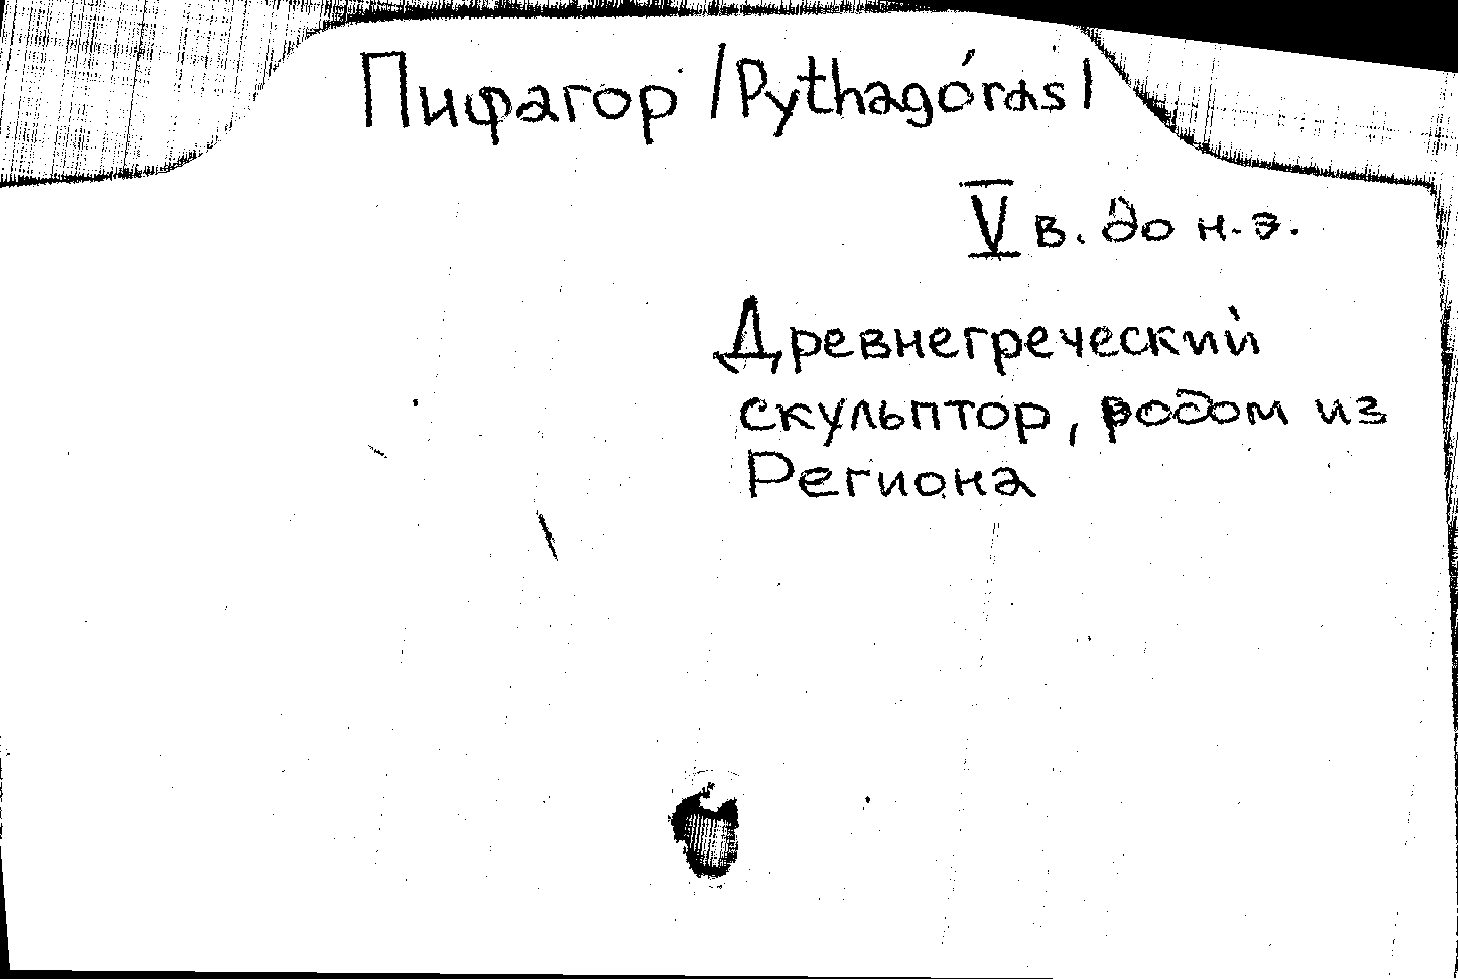 Пифагор /Pythagóras/
V в. до н.э.
Древнегреческий
скульптор, родом из
Региона